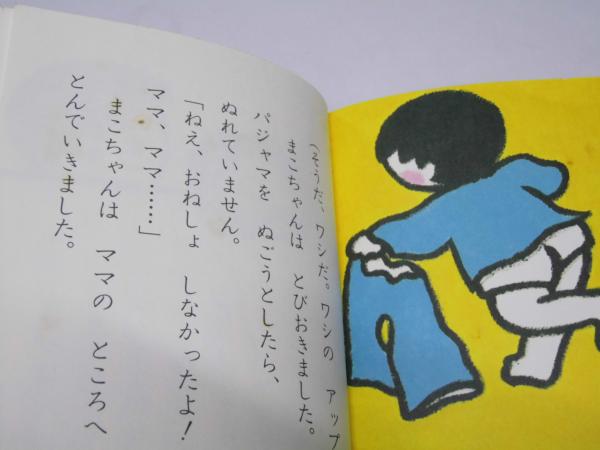 (そうだ、ワシだ。ワシの アップ
まこちゃんは とびおきました。
パジャマを ぬごうとしたら、
ぬれていません。
「ねえ、おねしょ しなかったよ!
ママ、ママ……」
まこちゃんは ママの ところへ
とんでいきました。